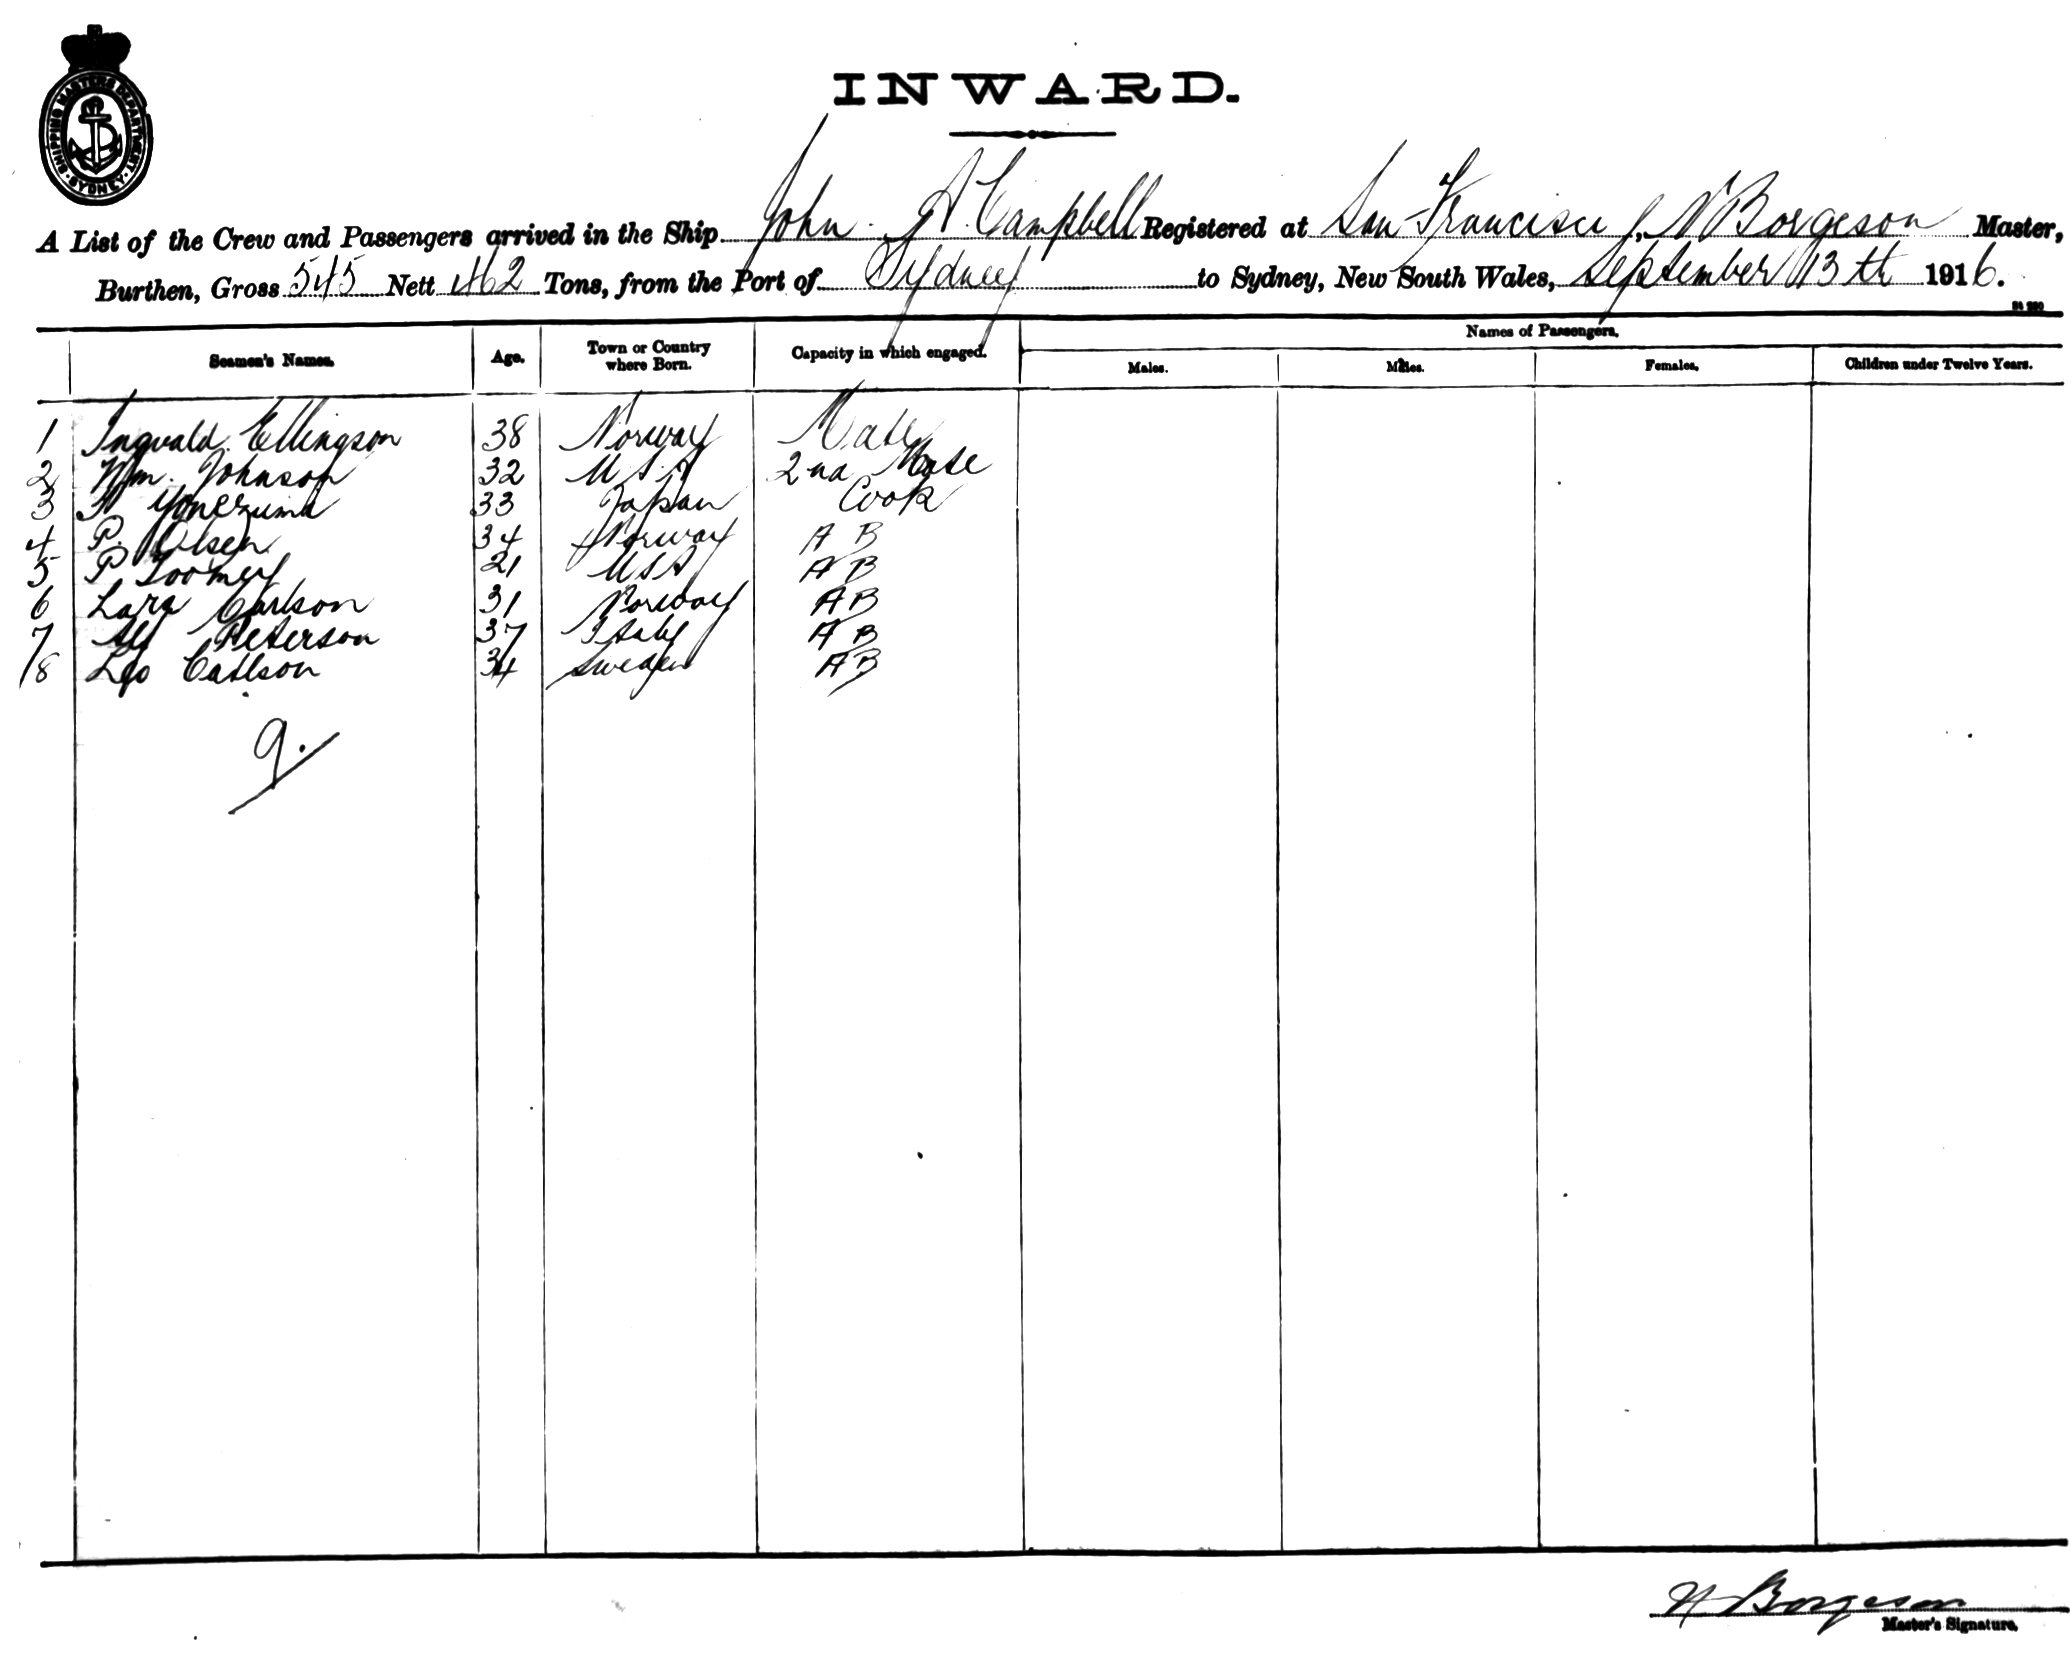 SHIPPING MASTERS DEPARTMENT. SYDNEY
INWARD.
A List of the Crew and Passengers arrived in the Ship John A. Campbell Registered at San Francisco, N Borgeson Master,
Burthen, Gross 545 Nett 462 Tons, from the Port of Sydney to Sydney, New South Wales, September 13th 1916.
Seamen's Names. Age. Town or Country where Born. Capacity in which engaged. Names of Passengers.
Males. Males. Females. Children under Twelve Years.
1 Ingvald Ellingson 38 Norway Mate
2 Wm. Johnson 32 U.S.A 2nd Mate
3 Yonezuma 33 Japan Cook
4 P. Olsen 34 Norway A B
5 P Toomey 21 USA A B
6 Lars Carlson 31 Norway A B
7 Alf Peterson 37 Italy A B
8 Leo Carlson 34 Sweden A B
9.
N Borgeson
Master's Signature.